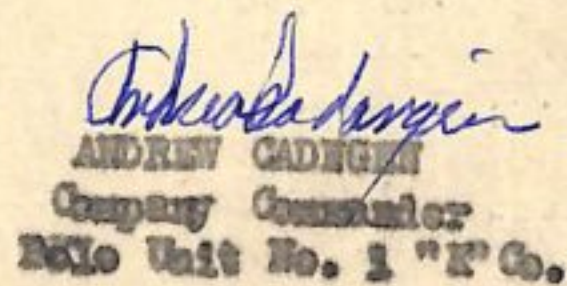 Andrew Cadangen
ANDREW CADNGEN
Company Commander
Bolo Unit No. 1 "K" Co.